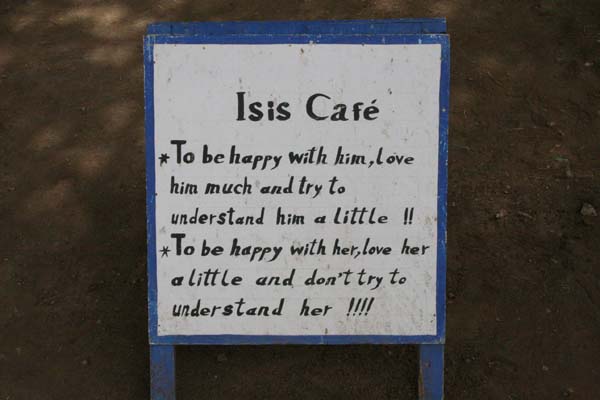 Isis Café
*To be happy with him, love
him much and try to
understand him a little !!
*To be happy with her, love her
a little and don't try to
understand her !!!!